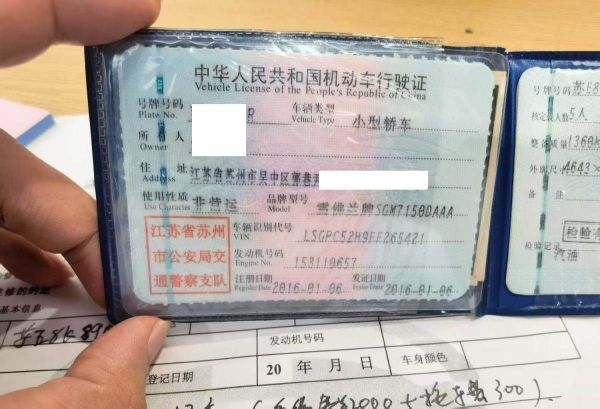 中华人民共和国机动车行驶证
Vehicle License of the People's Republic of China
号牌号码 R 车辆类型 小型轿车
Plate No. Vehicle Type
所有人
Owner
住址 江苏省苏州市吴中区郭巷
Address
使用性质 非营运 品牌型号 雪佛兰牌SGM7158DAAA
Use Character Model
江苏省苏州
市公安局交
通警察支队
车辆识别代号 LSGPC52H9FF265421
VIN
发动机号码 153110657
Engine No.
注册日期 2016-01-06 发证日期 2016-01-06
Register Date Issue Date
号牌号码 苏E8
核定载人数 5人
整备质量 1368k
外廓尺寸 4643×
备注
检验有
检验记录
汽油
基本信息
发动机号码
登记日期 20 年 月 车身颜色